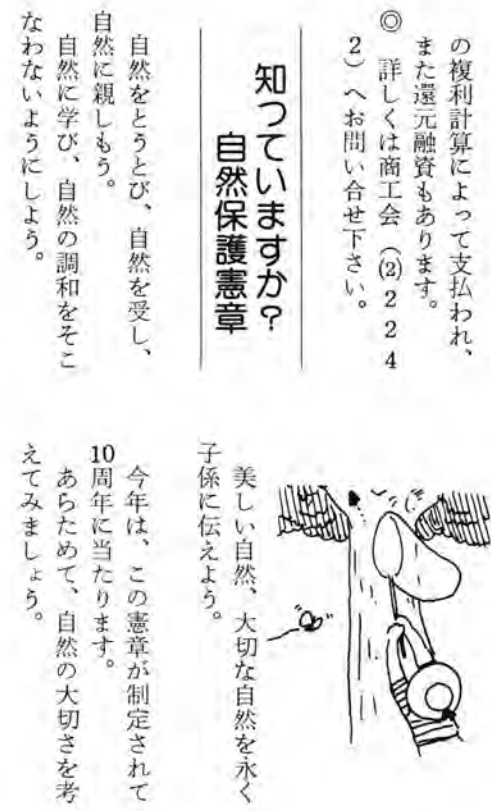 の複利計算によって支払われ、
また還元融資もあります。
◎　詳しくは商工会（⑵２２４
２）へお問い合せ下さい。
知っていますか？
自然保護憲章
自然をとうとび、自然を受し、
自然に親しもう。
自然に学び、自然の調和をそこ
なわないようにしよう。
美しい自然、大切な自然を永く
子係に伝えよう。
今年は、この憲章が制定されて
10周年に当たります。
あらためて、自然の大切さを考
えてみましょう。